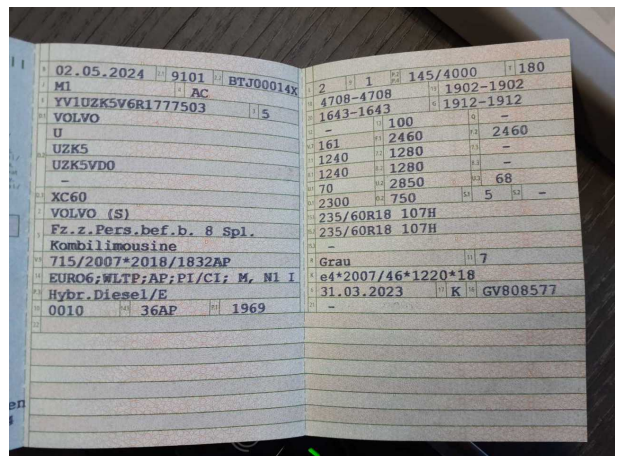 02.05.2024 9101 BTJ00014X
M1 AC
YV1UZK5V6R1777503 5
VOLVO
U
UZK5
UZK5VD0
–
XC60
VOLVO (S)
Fz.z.Pers.bef.b. 8 Spl.
Kombilimousine
715/2007*2018/1832AP
EURO6;WLTP;AP;PI/CI; M, N1 I
Hybr.Diesel/E
0010 36AP 1969
2 1 145/4000 180
4708-4708 1902-1902
1643-1643 1912-1912
– 100 –
161 2460 2460
1240 1280 –
1240 1280 –
70 2850 68
2300 750 5 –
235/60R18 107H
235/60R18 107H
–
Grau 7
e4*2007/46*1220*18
31.03.2023 K GV808577
–
en